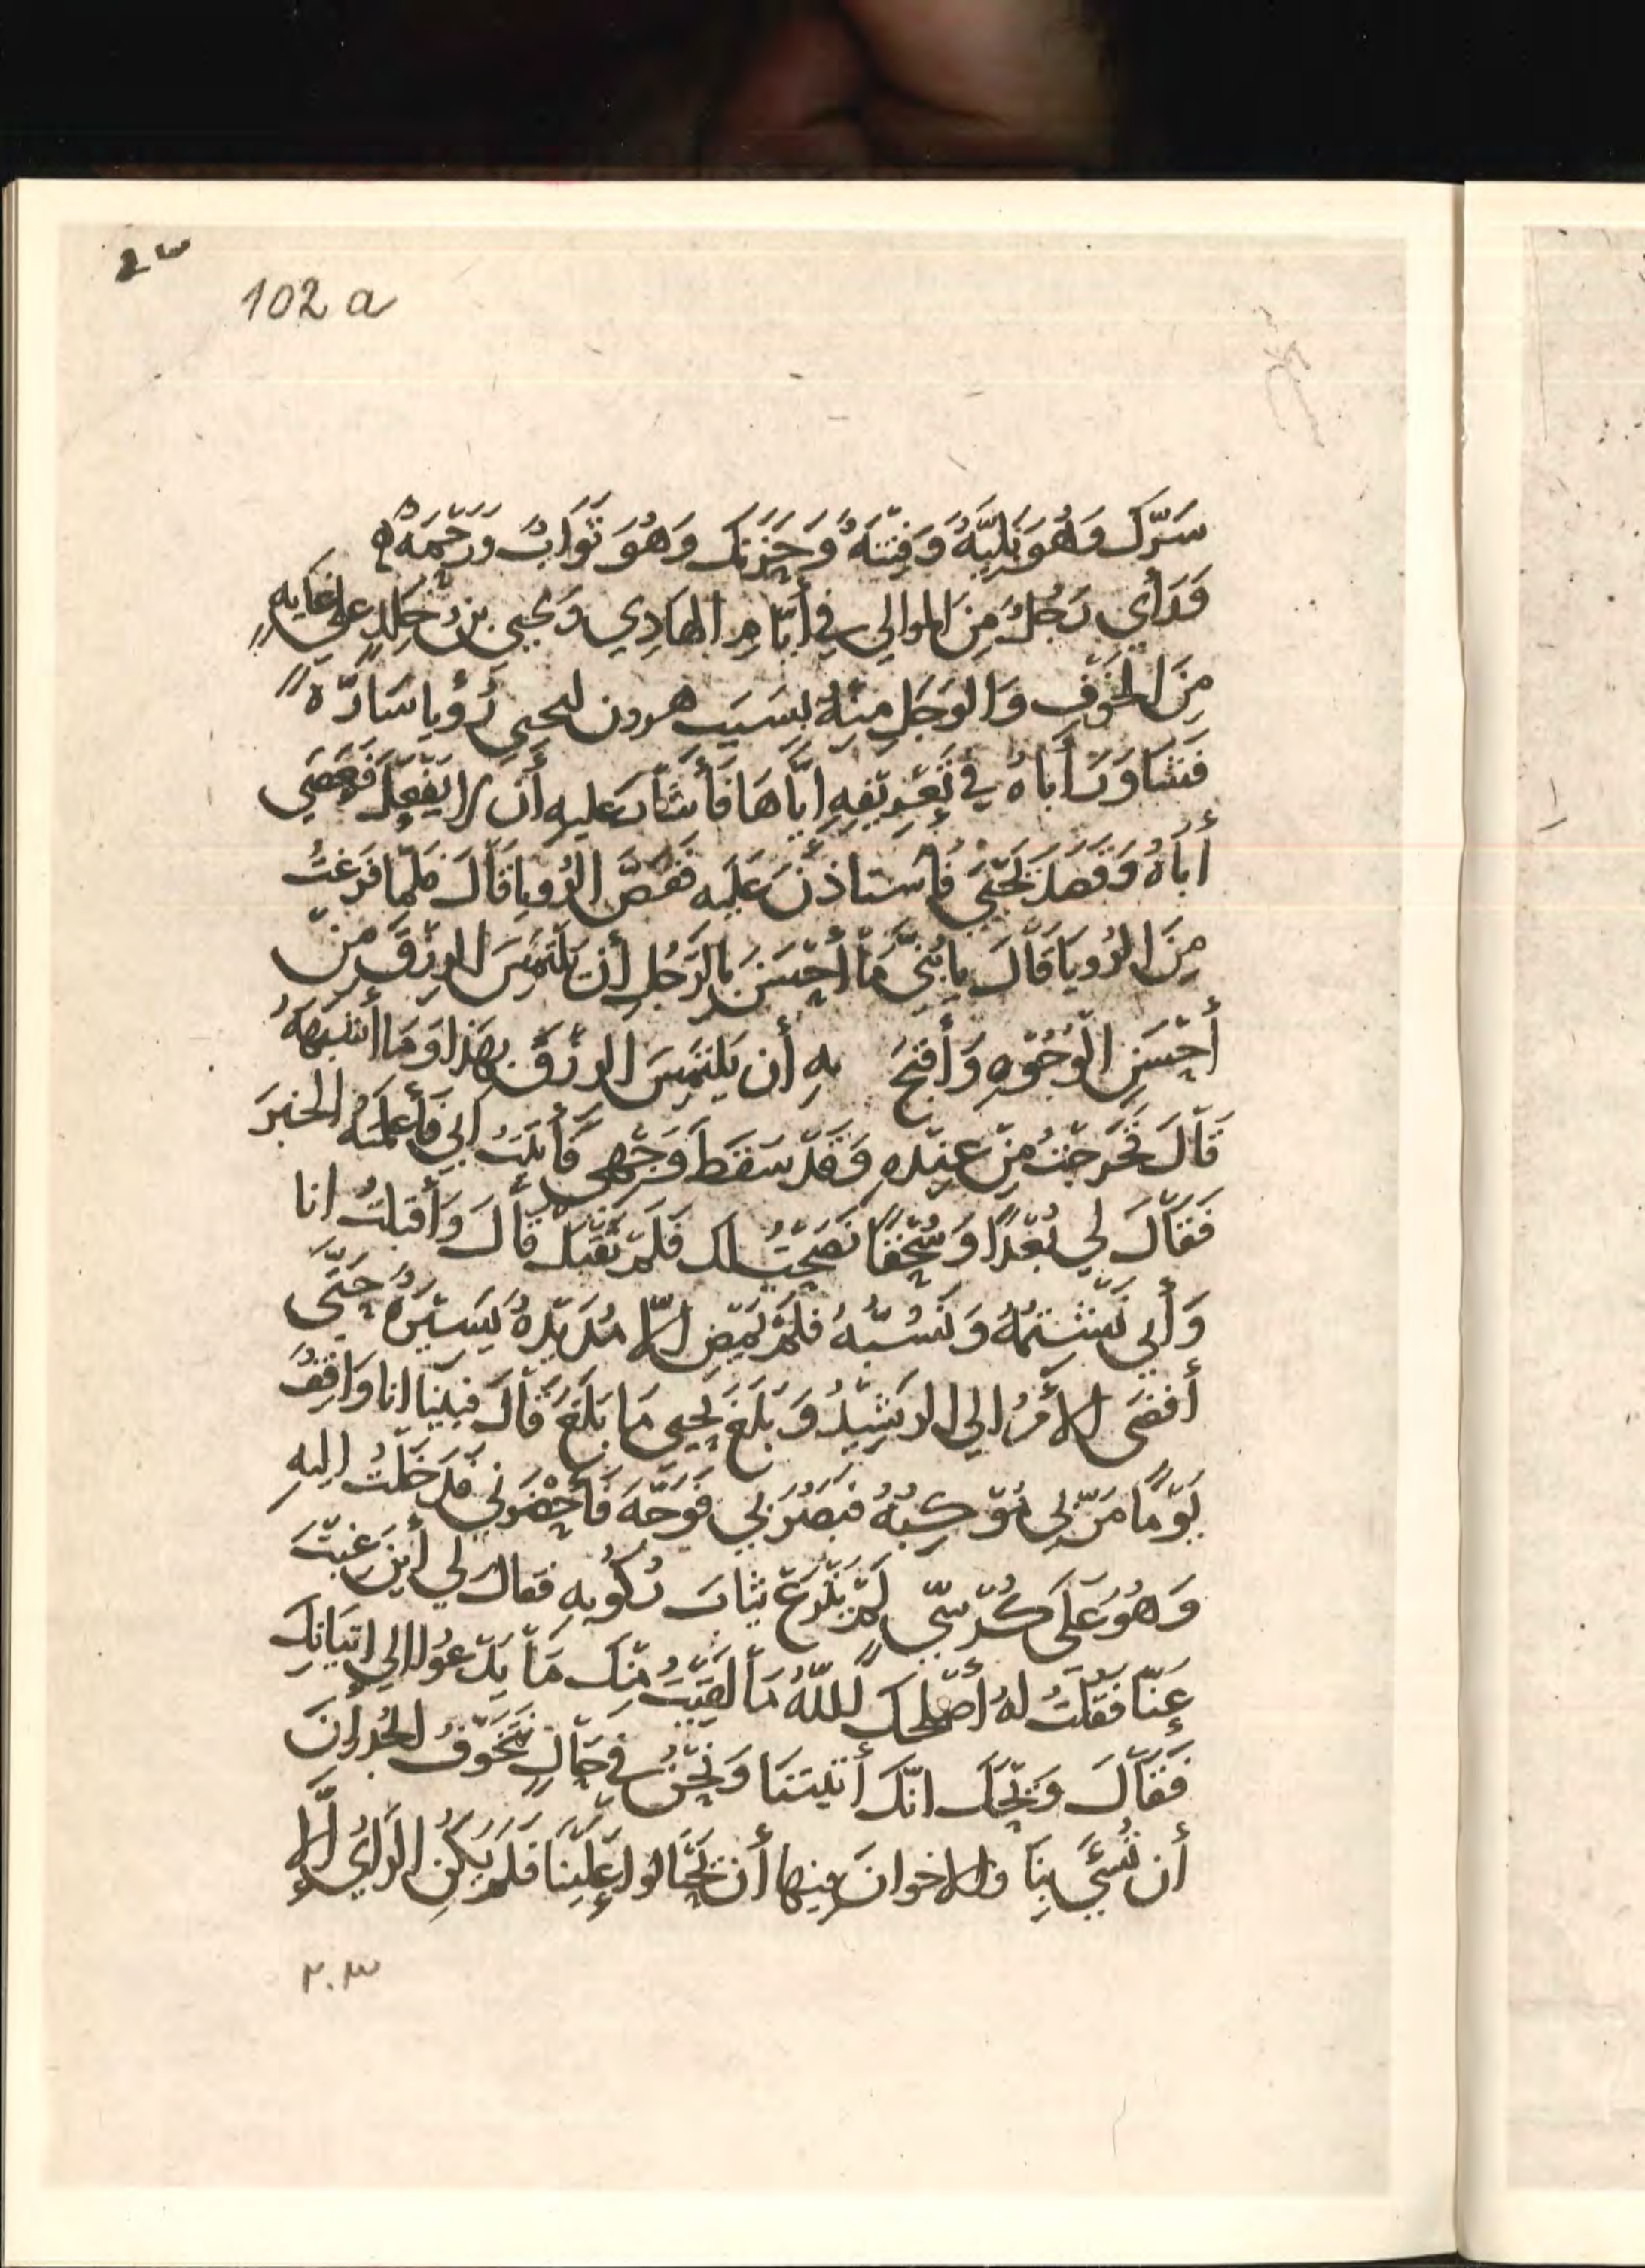 102 a
سَرّكَ وَهُوَ بَلِيَّةٌ وَفِتْنَةٌ وَحَزَنَكَ وَهُوَ ثَوَابٌ وَرَحْمَةٌ ه
وَرَأى رَجُلٌ مِنَ الموالي في أيّامِ الهَادِي وَيحيى بنُ خَالِدٍ على غَايَةٍ
مِنَ الخَوْفِ وَالوَجَلِ مِنْهُ بِسَبَبِ هرون ليحيى رُؤيا سَارّةً
فَشَاوَرَ أَبَاهُ في تَعْرِيْفِهِ ايَّاهَا فَأَشَارَ عليه أَن لا يَفْعَلَ فَعَصَى
أبَاهُ وَقَصَدَ يَحْيَى فَاستاذَنَ عَلَيه فَقَصَّ الرُويا قَالَ فلمّا فَرَغتُ
مِنَ الرُويَا قَالَ يا بُنَيَّ مَا أَحْسَنَ بالرَجُلِ أن يَلتَمِسَ الرِزْقَ مِنْ
أَحْسَنِ الوُجُوْهِ وَأقبَحَ به أن يَلتَمِسَ الرِزْقَ بهَذا وَمَا أشبَهَهُ
قَالَ فَخَرجْتُ مِنْ عِنْدِهِ وَقَدْ سَقَطَ وَجْهِي فَأَتَيْتُ ابي فَأَعلَمتُهُ الخبَرَ
فَقَالَ لي بُعْدًا وَسُحْقًا نَصَحْتُ لك فَلَمْ تَقْبَلْ قَالَ وَأَقبَلتُ انا
وَأَبي نَشْتِمُهُ وَنَسُبُّهُ فَلَمْ يَمْضِ الّا مُدَيْدَةٌ يَسِيْرَةٌ حَتَّى
أفضَى الأَمْرُ الي الرَشِيْدُ وَبَلَغَ يحيى مَا بَلَغَ قَالَ فبينَا انا وَاقِفٌ
يَوْمًا مَرّ بي مَوْكِبُهُ فبَصُرَ بي فَوَجَّهَ فَأَحْضَرَني فدَخَلتُ اليهِ
وَهُوَ عَلَى كُرْسِيٍّ لَمْ يَنْزَعْ ثيابَ رُكُوبِهِ فقال لي أينَ غِبْتَ
عنّا فَقُلتُ لهُ أصْلحكَ اللّهُ مَا لقَيْتُ مِنْكَ مَا يَدْعُوا الي اتيَانِكَ
فَقَالَ وَيْحَكَ انّكَ أتيتَنَا وَنَحْنُ في حَالٍ نَتَخَوَّفُ الجُدرانَ
أن تُشِيَ بِنَا والاخوانَ فيها أن يَحتالوا عَلَيْنَا فَلَمْ يَكُنِ الرَايُ إلّا
٢٠٣